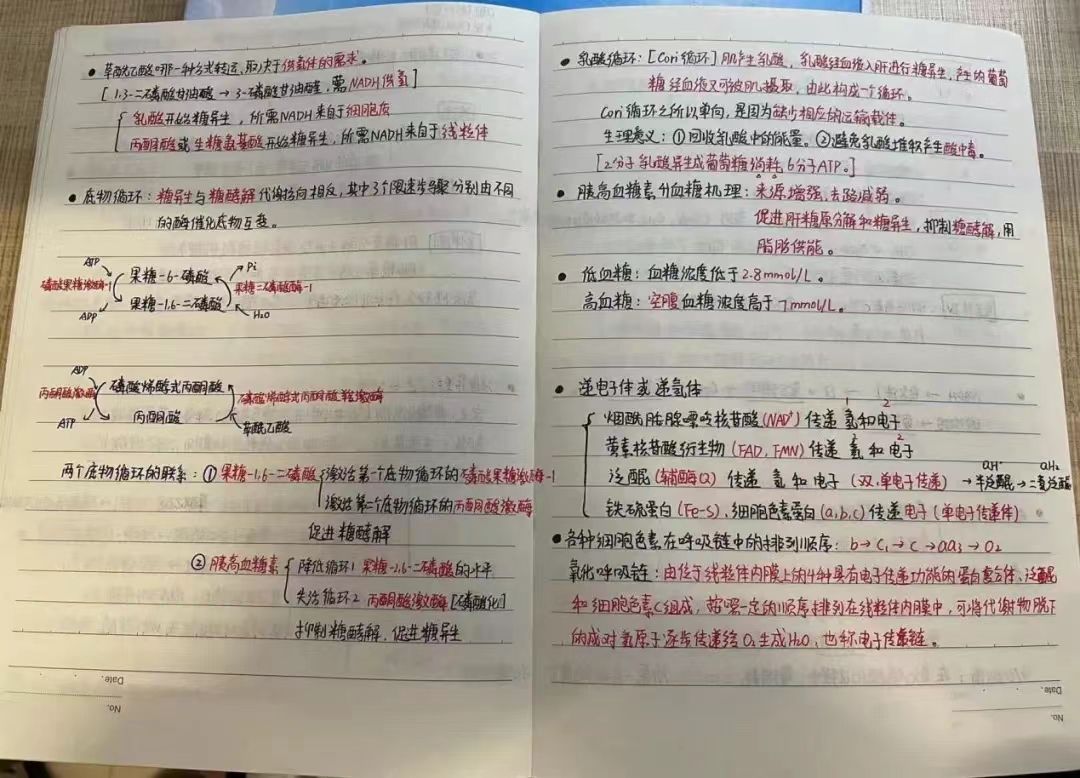 ● 草酰乙酸哪一种方式转运,取决于供氢体的需求.
[1.3-二磷酸甘油酸 → 3-磷酸甘油醛,需NADH供氢]
乳酸开始糖异生,所需NADH来自于细胞质
丙酮酸或生糖氨基酸开始糖异生,所需NADH来自于线粒体
● 底物循环:糖异生与糖酵解代谢指向相反,其中3个限速步骤分别由不同
的酶催化底物互变。
ATP 果糖-6-磷酸 Pi
磷酸果糖激酶-1 果糖二磷酸酶-1
ADP 果糖-1.6-二磷酸 H₂O
ADP 磷酸烯醇式丙酮酸
丙酮酸激酶 磷酸烯醇式丙酮酸羧激酶
ATP 丙酮酸 草酰乙酸
两个底物循环的联系:① 果糖-1.6-二磷酸 激活第一个底物循环的磷酸果糖激酶-1
激活第二个底物循环的丙酮酸激酶
促进糖酵解
② 胰高血糖素 降低循环1 果糖-2.6-二磷酸的水平
失活循环2 丙酮酸激酶[磷酸化]
抑制糖酵解,促进糖异生
Date.
No.
● 乳酸循环:[Cori循环] 肌产生乳酸,乳酸经血液入肝进行糖异生,产生的葡萄
糖经血液又可被肌摄取,由此构成一个循环。
Cori循环之所以单向,是因为缺少相应的运输载体。
生理意义:①回收乳酸中的能量。②避免乳酸堆积产生酸中毒。
[2分子乳酸异生成葡萄糖消耗6分子ATP。]
● 胰高血糖素升血糖机理:来源增强,去路减弱。
促进肝糖原分解和糖异生,抑制糖酵解,用
脂肪供能。
● 低血糖:血糖浓度低于2.8mmol/L。
高血糖:空腹血糖浓度高于7mmol/L。
● 递电子体或递氢体
烟酰胺腺嘌呤核苷酸(NAD⁺)传递氢和电子 1 2
黄素核苷酸衍生物(FAD,FMN)传递氢和电子 2
泛醌(辅酶Q)传递氢和电子(双,单电子传递) → 半泛醌 → 二氢泛醌 QH QH₂
铁硫蛋白(Fe-S),细胞色素蛋白(a,b,c)传递电子(单电子传递体)
● 各种细胞色素在呼吸链中的排列顺序:b→c₁→c→aa₃→O₂
氧化呼吸链:由位于线粒体内膜上的4种具有电子传递功能的蛋白复合体、泛醌
和细胞色素C组成,按照一定的顺序排列在线粒体内膜中,可将代谢物脱下
的成对氢原子逐步传递给O₂生成H₂O,也称电子传递链。
Date.
No.